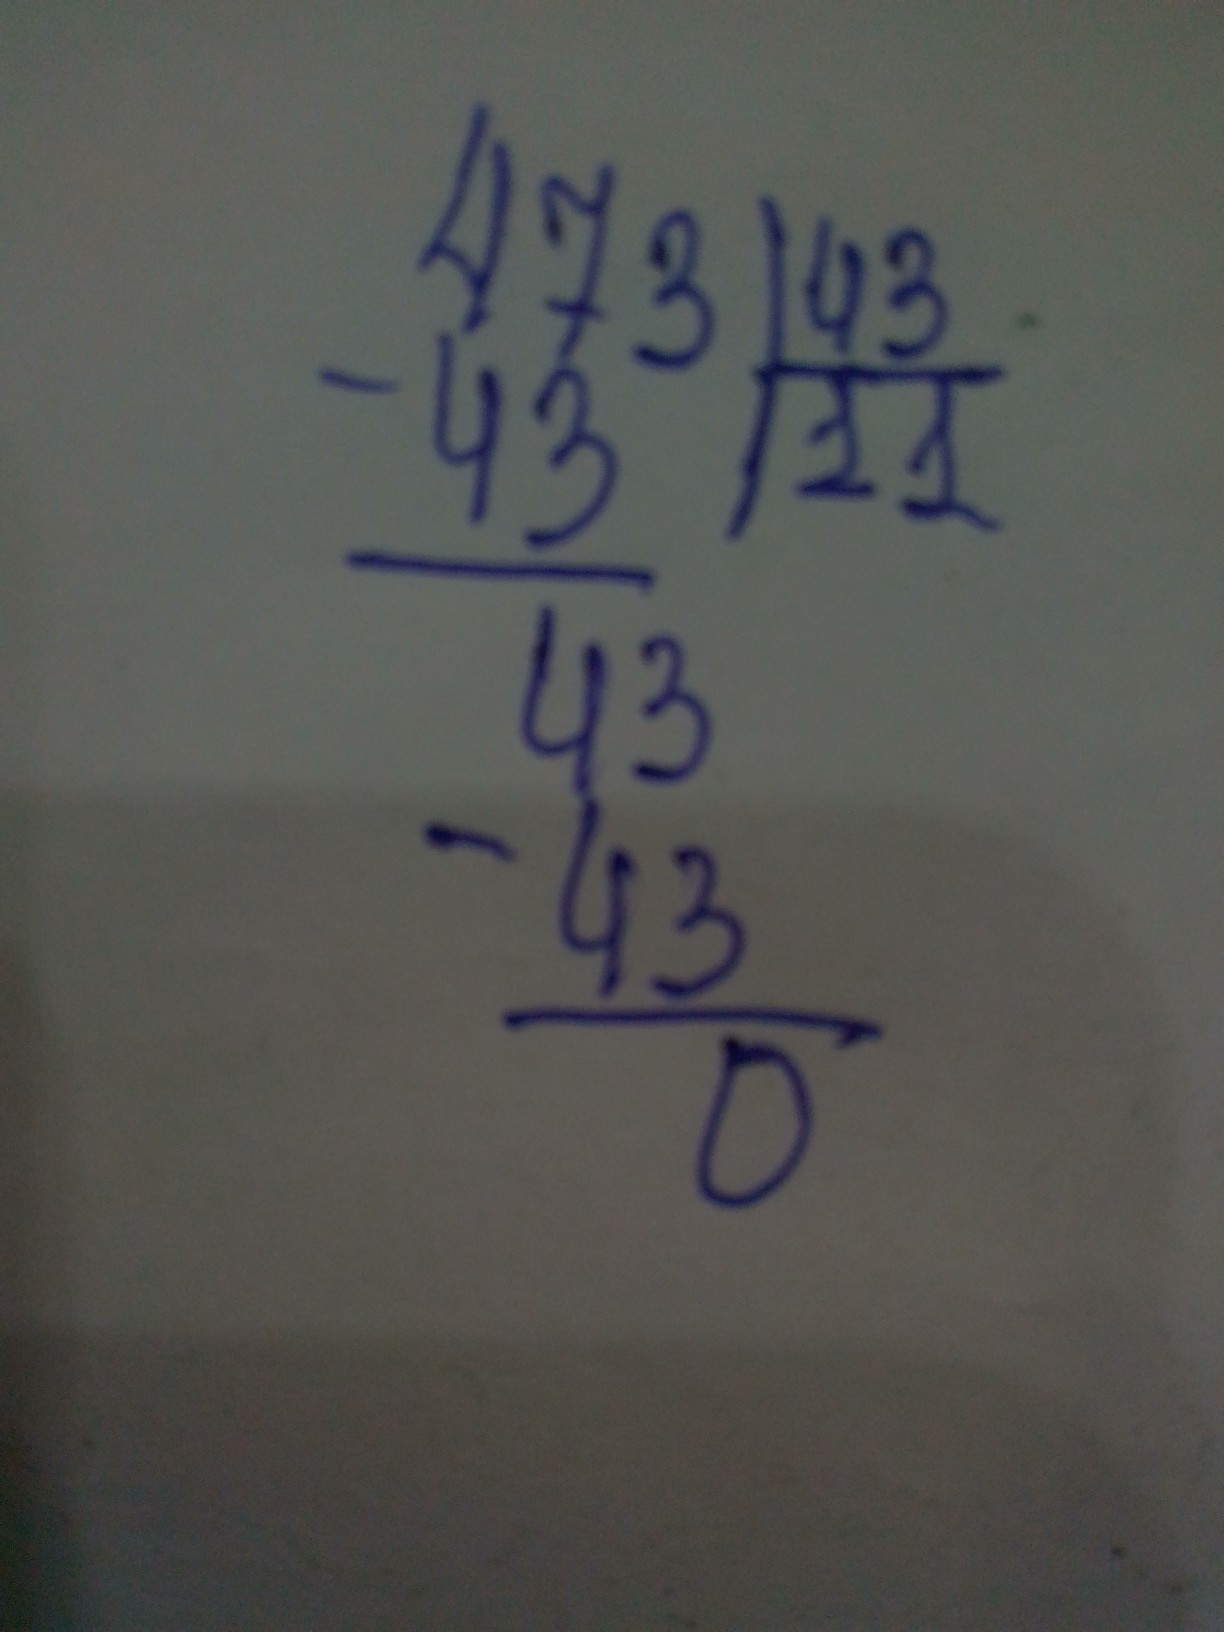 473 | 43
- 43 | 11
43
- 43
0